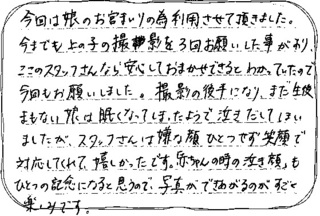 今回は娘のお宮まいりの為利用させて頂きました。
今までも上の子の撮影を3回お願いした事があり、
ここのスタッフさんなら安心しておまかせできるとわかっていたので
今回もお願いしました。撮影の後半になり、まだ生後
まもない娘は眠くなってしまったようで泣きだしてしまい
ましたが、スタッフさんは嫌な顔ひとつせず笑顔で
対応してくれて嬉しかったです。赤ちゃんの時の泣き顔も
ひとつの記念になると思うので、写真ができあがるのがすごく
楽しみです。